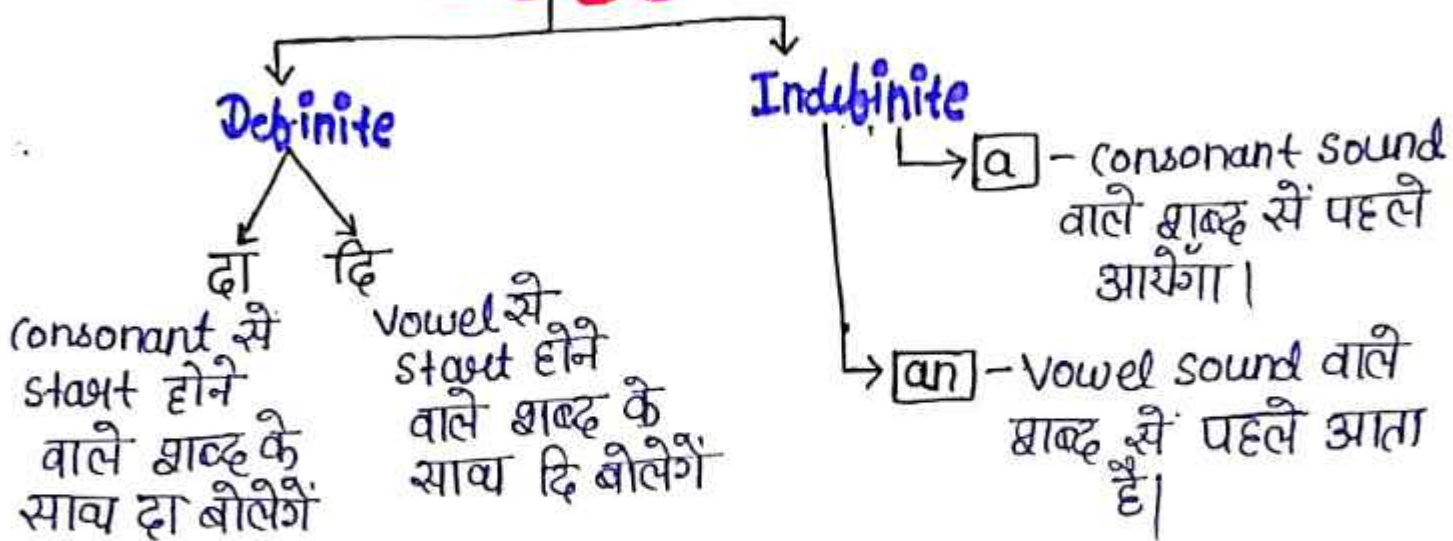 Definite
Indefinite
दा
दि
consonant से
start होने
वाले शब्द के
साथ दा बोलेगें
vowel से
start होने
वाले शब्द के
साथ दि बोलेगें
a - consonant sound
वाले शब्द सें पहले
आयेगाँ।
an - vowel sound वाले
शब्द सें पहले आता
है।